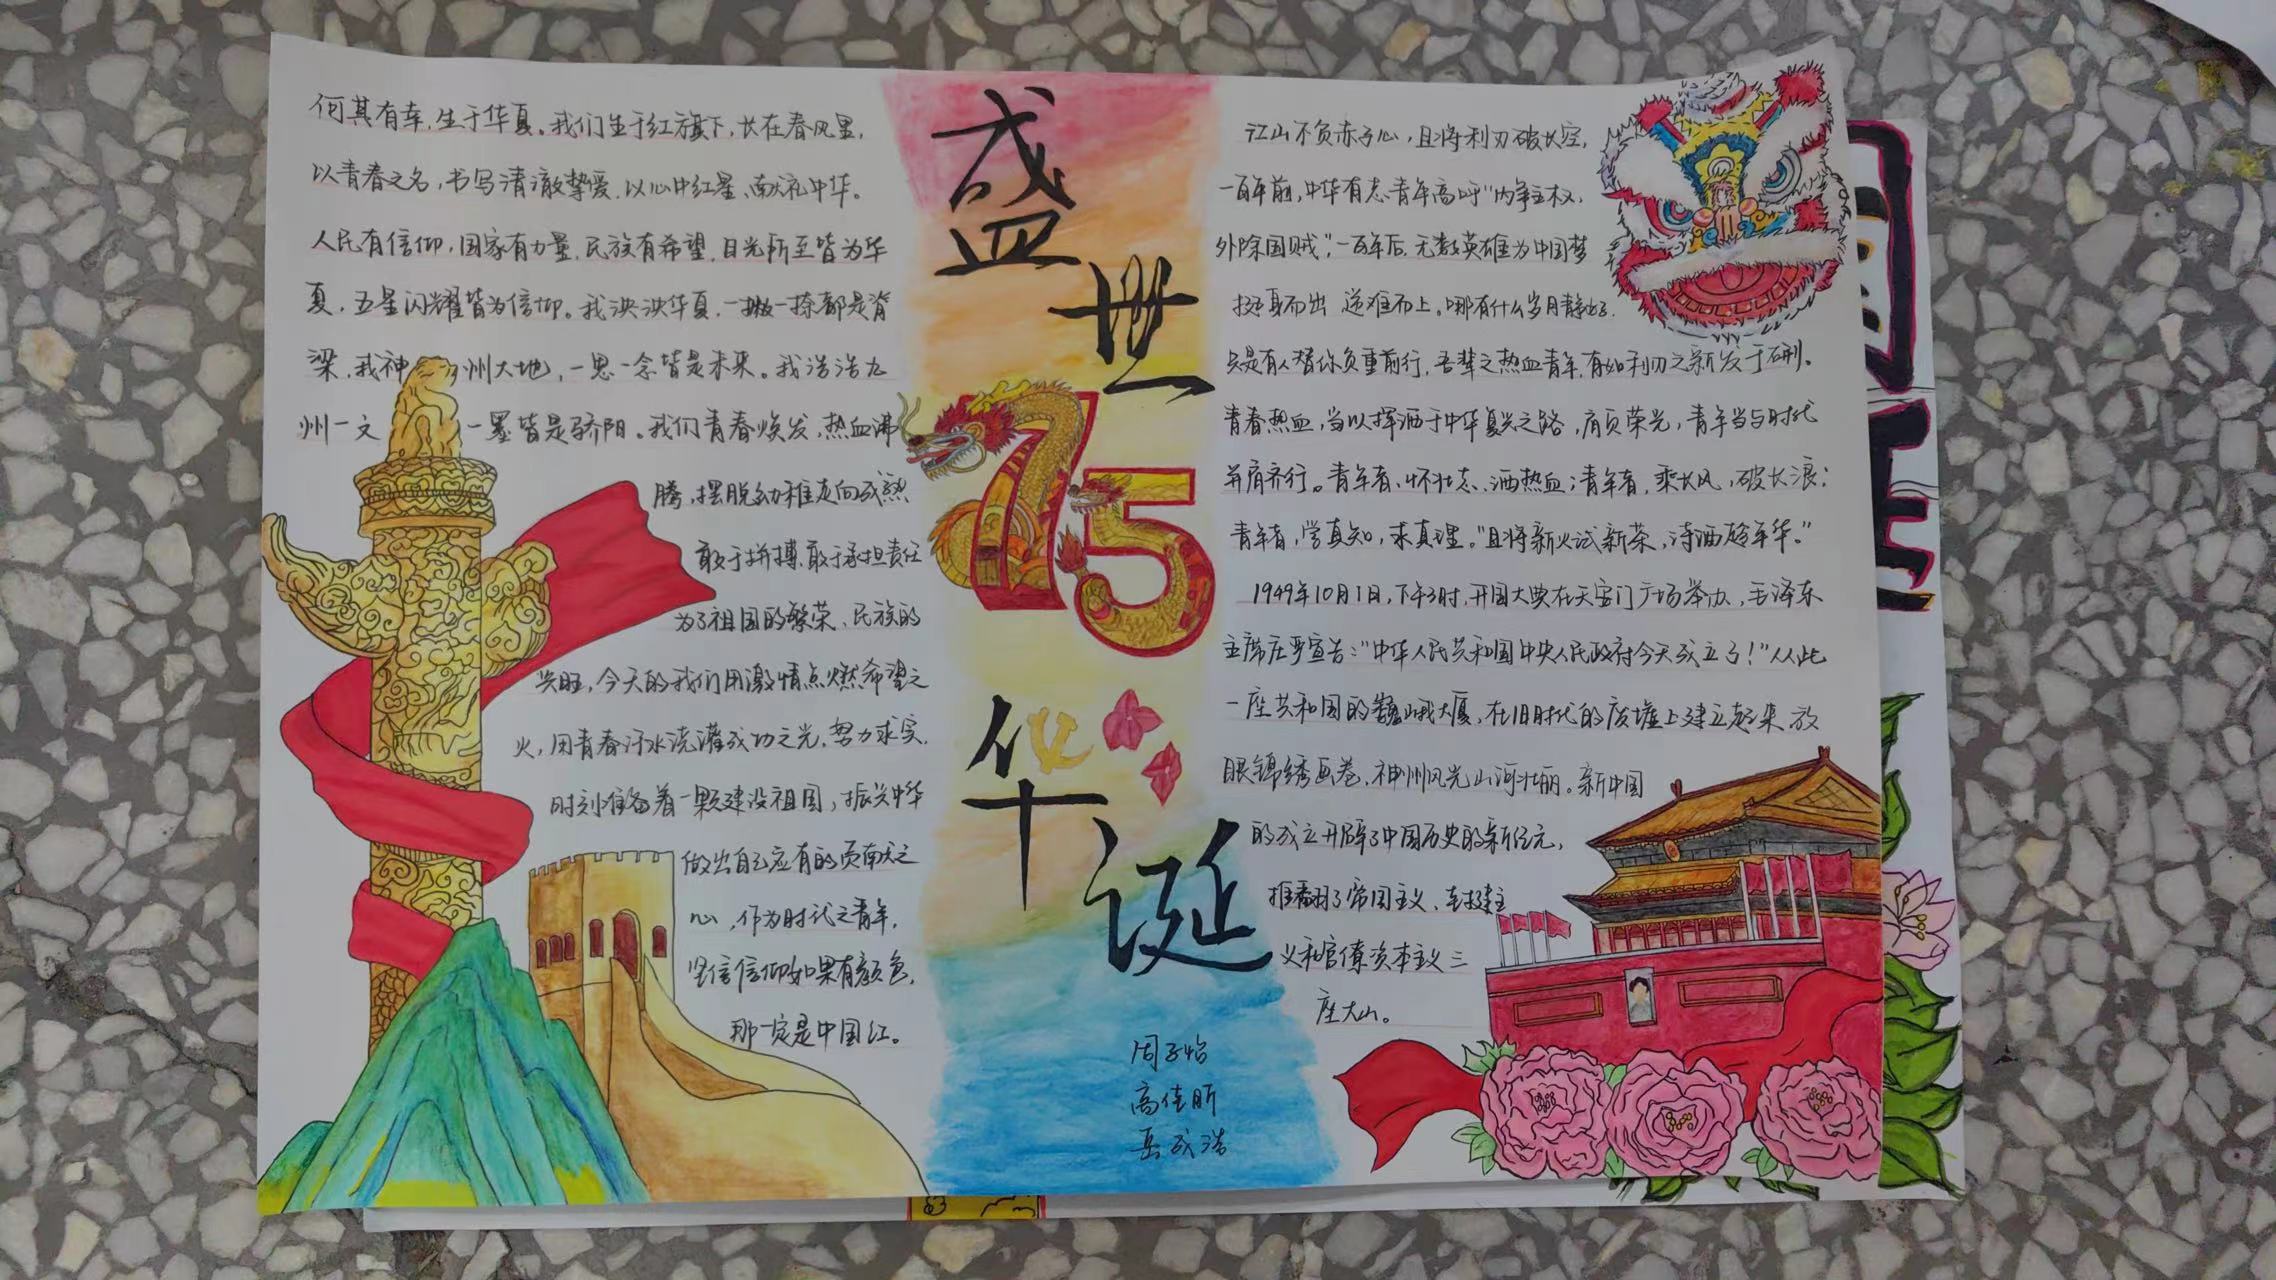 何其有幸,生于华夏。我们生于红旗下,长在春风里,
以青春之名,书写清澈挚爱,以心中红星,献礼中华。
人民有信仰,国家有力量,民族有希望,目光所至皆为华
夏,五星闪耀皆为信仰。我泱泱华夏,一撇一捺都是脊
梁,我神州大地,一思一念皆是未来。我浩浩九
州一文一墨皆是骄阳。我们青春焕发,热血沸
腾,摆脱幼稚走向成熟
敢于拼搏、敢于承担责任
为了祖国的繁荣、民族的
兴旺,今天的我们用激情点燃希望之
火,用青春汗水浇灌成功之光,努力求实,
时刻准备着一颗建设祖国,振兴中华
做出自己应有的贡献之
心,作为时代之青年,
坚信信仰如果有颜色,
那一定是中国红。
盛世
75
华诞
周子怡
高佳昕
岳成浩
江山不负赤子心,且将利刃破长空,
一百年前,中华有志青年高呼"内争主权,
外除国贼",一百年后,无数英雄为中国梦
挺身而出 逆难而上。哪有什么岁月静好,
只是有人替你负重前行,吾辈之热血青年,有如利刃之新发于硎。
青春热血,当以挥洒于中华复兴之路,肩负荣光,青年当与时代
并肩齐行。青年者、怀壮志、洒热血;青年者,乘长风,破长浪;
青年者,学真知,求真理。"且将新火试新茶,诗酒趁年华。"
1949年10月1日,下午3时,开国大典在天安门广场举办,毛泽东
主席庄严宣告:"中华人民共和国中央人民政府今天成立了!"从此
一座共和国的巍峨大厦,在旧时代的废墟上建立起来,放
眼锦绣画卷,神州风光山河壮丽。新中国
的成立开辟了中国历史的新纪元,
推翻了帝国主义、封建主
义和官僚资本主义三
座大山。